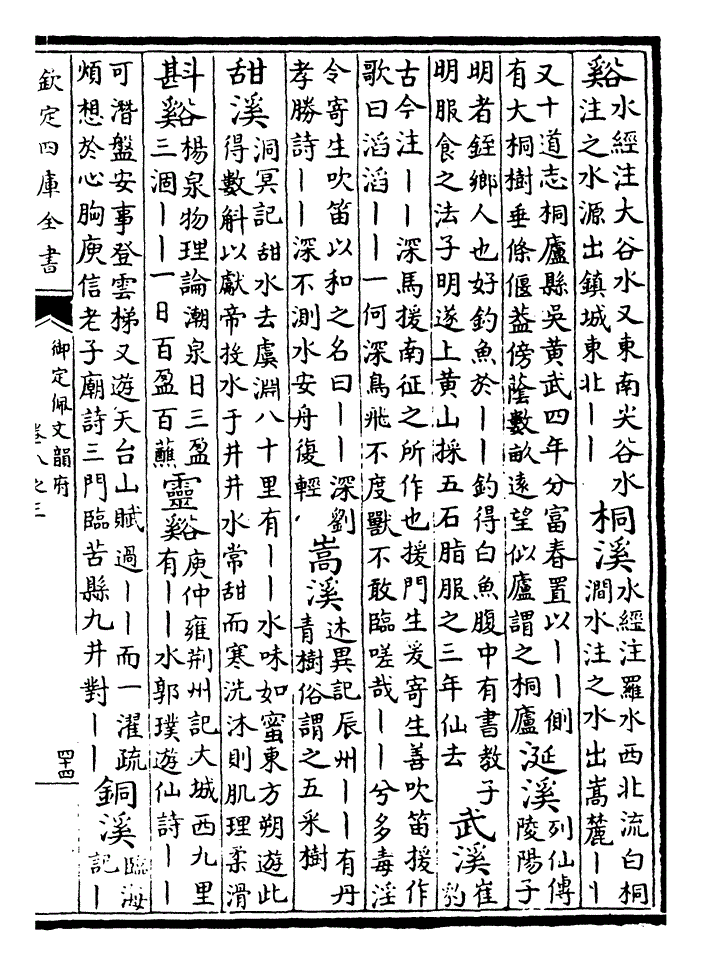 谿
水經注大谷水又東南尖谷水
注之水源出鎮城東北丨丨
桐溪
水經注羅水西北流白桐
澗水注之水出嵩麓丨丨
又十道志桐廬縣吳黃武四年分富春置以丨丨側
有大桐樹垂條偃葢傍蔭數畝遠望似廬謂之桐廬
涎溪
列仙傳
陵陽子
明者銍鄉人也好釣魚於丨丨釣得白魚腹中有書教子
明服食之法子明遂上黃山採五石脂服之三年仙去
武溪
崔
豹
古今注丨丨深馬援南征之所作也援門生爰寄生善吹笛援作
歌曰滔滔丨丨一何深鳥飛不度獸不敢臨嗟哉丨丨兮多毒淫
令寄生吹笛以和之名曰丨丨深劉
孝勝詩丨丨深不測水安舟復輕
嵩溪
述異記辰州丨丨有丹
青樹俗謂之五采樹
甜溪
洞冥記甜水去虞淵八十里有丨丨水味如蜜東方朔遊此
得數斛以獻帝投水于井井水常甜而寒洗沐則肌理柔滑
斟谿
楊泉物理論潮泉日三盈
三涸丨丨一日百盈百蘸
靈谿
庾仲雍荆州記大城西九里
有丨丨水郭璞遊仙詩丨丨
可潛盤安事登雲梯又遊天台山賦過丨丨而一濯疏
煩想於心胸庾信老子廟詩三門臨苦縣九井對丨丨
銅溪
臨海
記丨
欽定四庫全書
御定佩文韻府
卷八之三
四十四